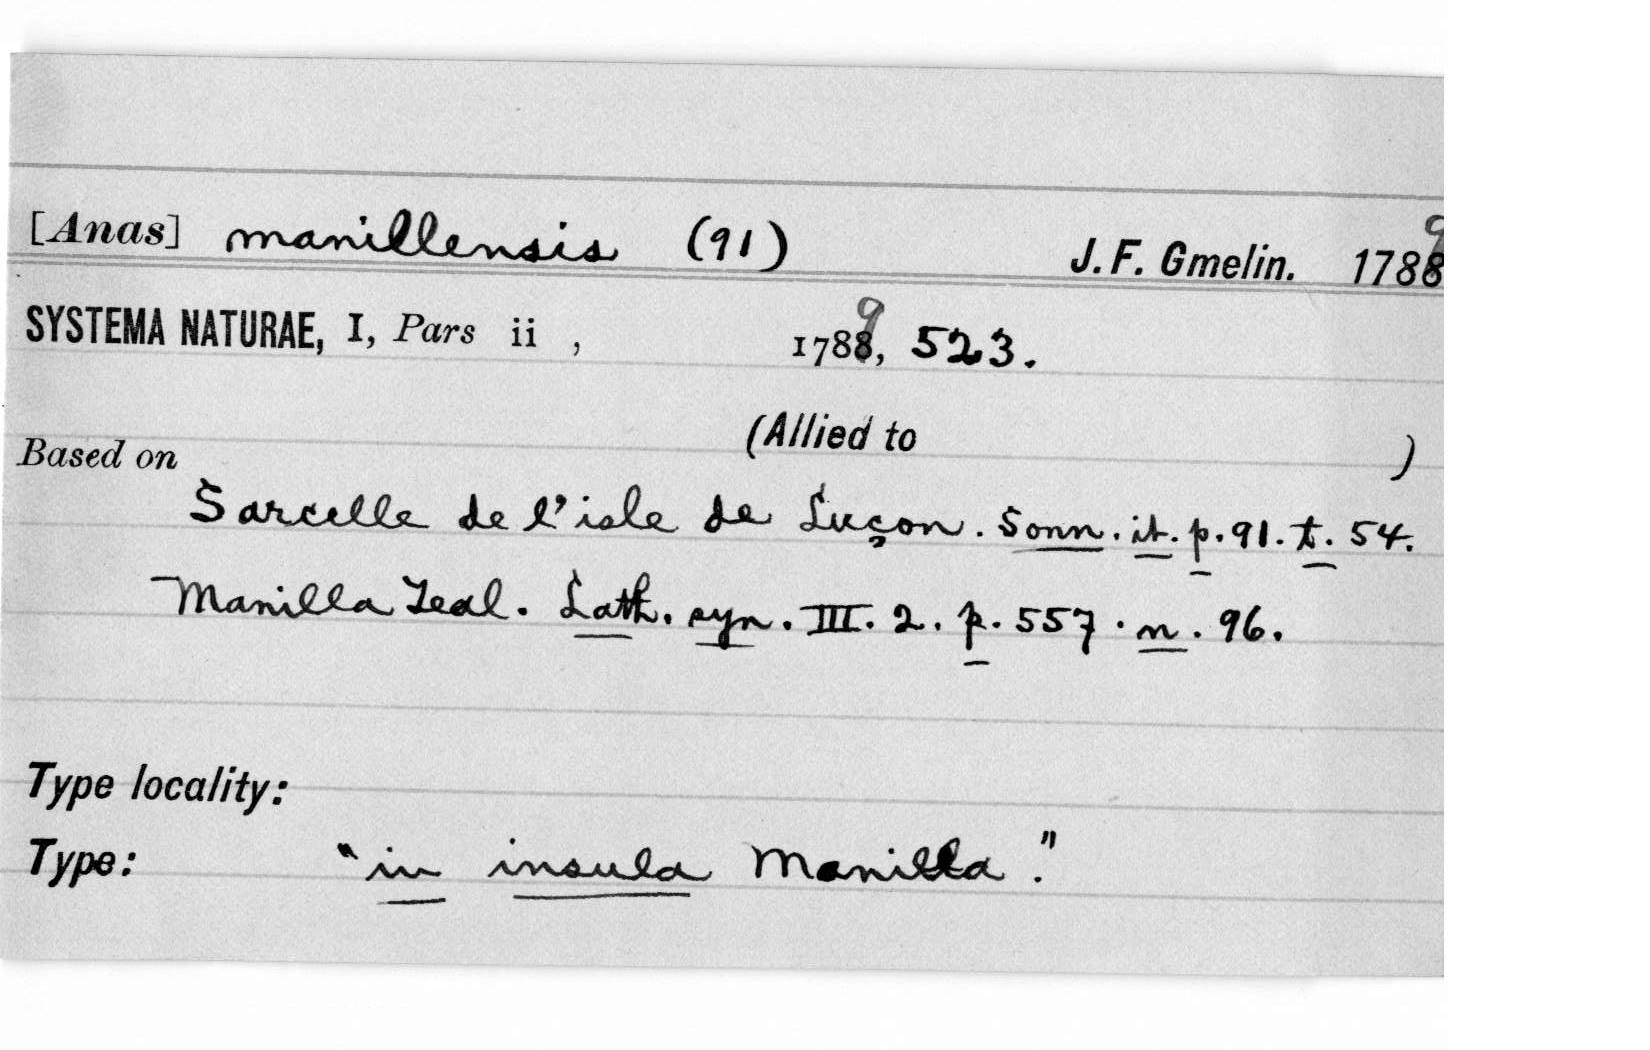 [Anas] manillensis (91) J. F. Gmelin. 1789
SYSTEMA NATURAE, I, Pars ii , 1789, 523.
(Allied to )
Based on
Sarcelle de l'isle de Luçon. Sonn. it. p. 91. t. 54.
Manilla Teal. Lath. syn. III. 2. p. 557. n. 96.
Type locality:
Type: "in insula Manilla."